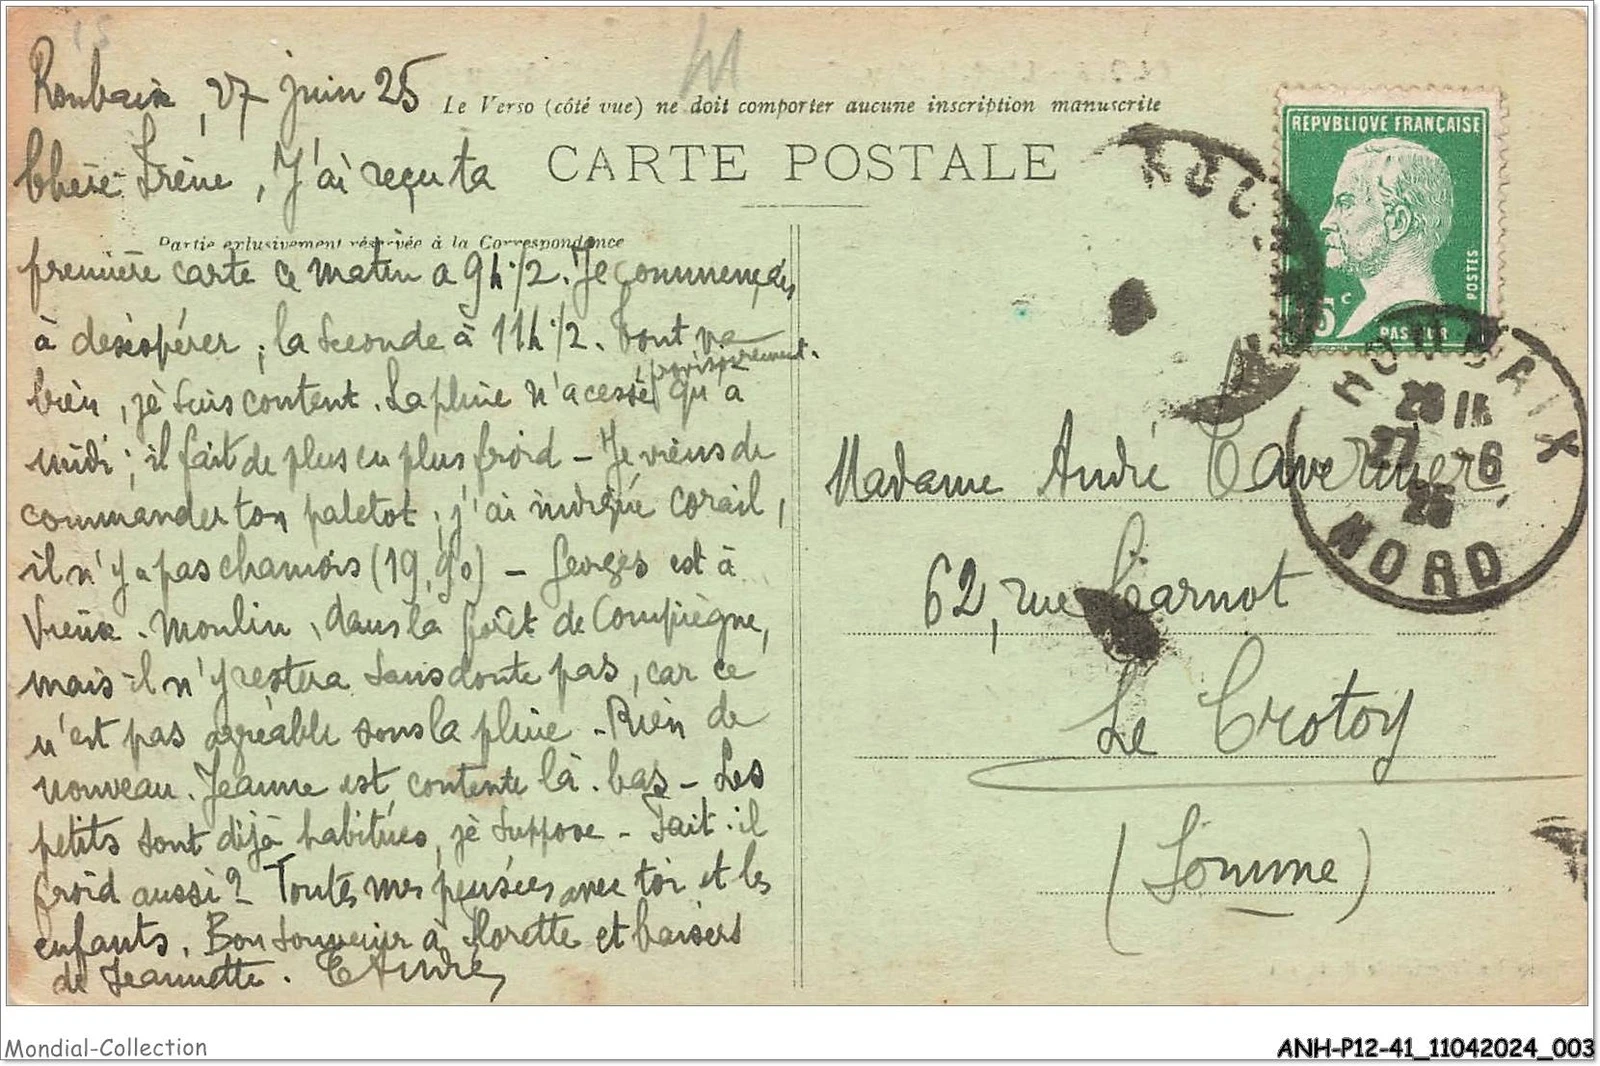 Roubaix, 27 juin 25
Le Verso (côté vue) ne doit comporter aucune inscription manuscrite
CARTE POSTALE
Chère Irène, J'ai reçu ta
Partie exlusivement réservée à la Correspondance
première carte ce matin à 9h 1/2. Je commençais
à desespérer ; la seconde à 11h 1/2. Tout va
bien, je suis content. La pluie n'a cessé provisoirement. qu'à
midi ; il fait de plus en plus froid - Je viens de
commander ton paletot ; j'ai indiqué corail,
il n'y a pas chamois (19,90) - Georges est à
Vieux-Moulin, dans la forêt de Compiègne,
mais il n'y restera sans doute pas, car ce
n'est pas agréable sous la pluie - Rien de
nouveau. Jeanne est contente là-bas - Les
petits sont déjà habitués, je suppose - Fait-il
froid aussi ? Toutes mes pensées avec toi et les
enfants. Bon souvenir à Florette et baisers
de Jeannette. André
REPVBLIQVE FRANÇAISE
POSTES
15c
PASTEUR
ROUBAIX
27 -6
25
NORD
Madame André Tavernier
62, rue Carnot
Le Crotoy
(Somme)
Mondial-Collection
ANH-P12-41_11042024_003